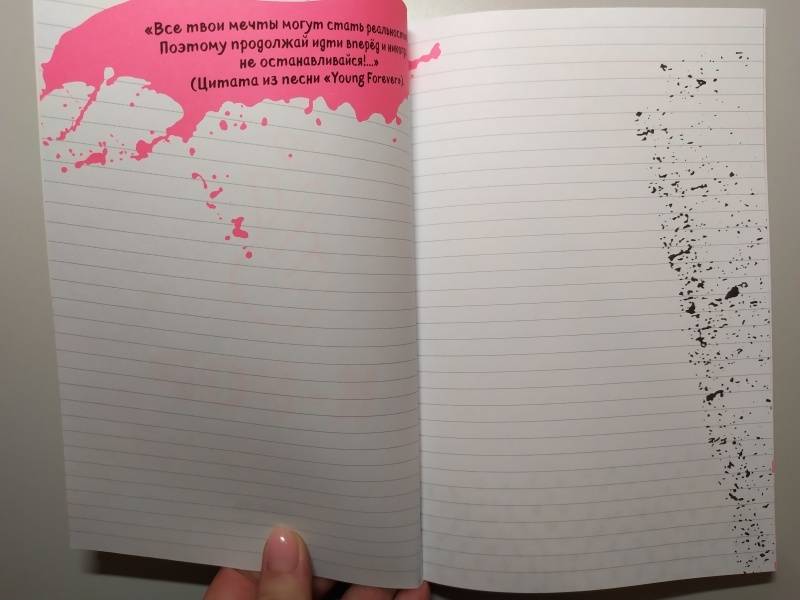 «Все твои мечты могут стать
Поэтому продолжай идти вперёд и
не останавливайся!...»
(Цитата из песни «Young Forever»).